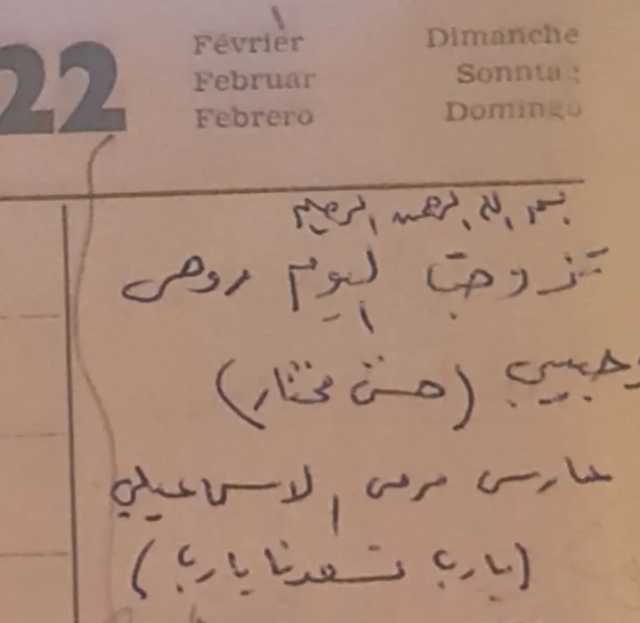 22
Février Dimanche
Februar Sonntag
Febrero Domingo
بسم الله الرحمن الرحيم
تزوجت اليوم روحى
وحبيبى (حسن مختار)
حارس مرمى الاسماعيلي
(يارب تسعدنا يارب)